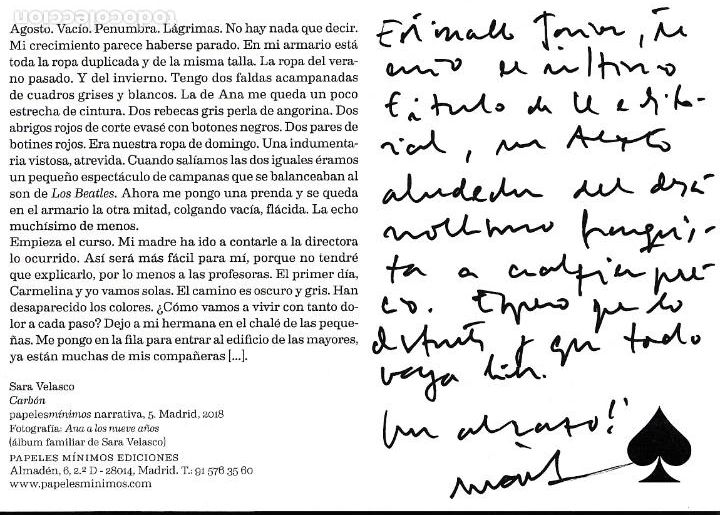 Agosto. Vacío. Penumbra. Lágrimas. No hay nada que decir.
Mi crecimiento parece haberse parado. En mi armario está
toda la ropa duplicada y de la misma talla. La ropa del vera-
no pasado. Y del invierno. Tengo dos faldas acampanadas
de cuadros grises y blancos. La de Ana me queda un poco
estrecha de cintura. Dos rebecas gris perla de angorina. Dos
abrigos rojos de corte evasé con botones negros. Dos pares de
botines rojos. Era nuestra ropa de domingo. Una indumenta-
ria vistosa, atrevida. Cuando salíamos las dos iguales éramos
un pequeño espectáculo de campanas que se balanceaban al
son de Los Beatles. Ahora me pongo una prenda y se queda
en el armario la otra mitad, colgando vacía, flácida. La echo
muchísimo de menos.
Empieza el curso. Mi madre ha ido a contarle a la directora
lo ocurrido. Así será más fácil para mí, porque no tendré
que explicarlo, por lo menos a las profesoras. El primer día,
Carmelina y yo vamos solas. El camino es oscuro y gris. Han
desaparecido los colores. ¿Cómo vamos a vivir con tanto do-
lor a cada paso? Dejo a mi hermana en el chalé de las peque-
ñas. Me pongo en la fila para entrar al edificio de las mayores,
ya están muchas de mis compañeras [...].
Sara Velasco
Carbón
papelesmínimos narrativa, 5. Madrid, 2018
Fotografía: Ana a los nueve años
(álbum familiar de Sara Velasco)
PAPELES MÍNIMOS EDICIONES
Almadén, 6, 2.º D - 28014, Madrid. T.: 91 576 35 60
www.papelesminimos.com
Estimado Javier, te
envío el último
título de la edito-
rial, un texto
alrededor del desa-
rrollismo franquis-
ta a cualquier pre-
cio. Espero que lo
disfrutes y que todo
vaya bien.
Un abrazo!
todocoleccion